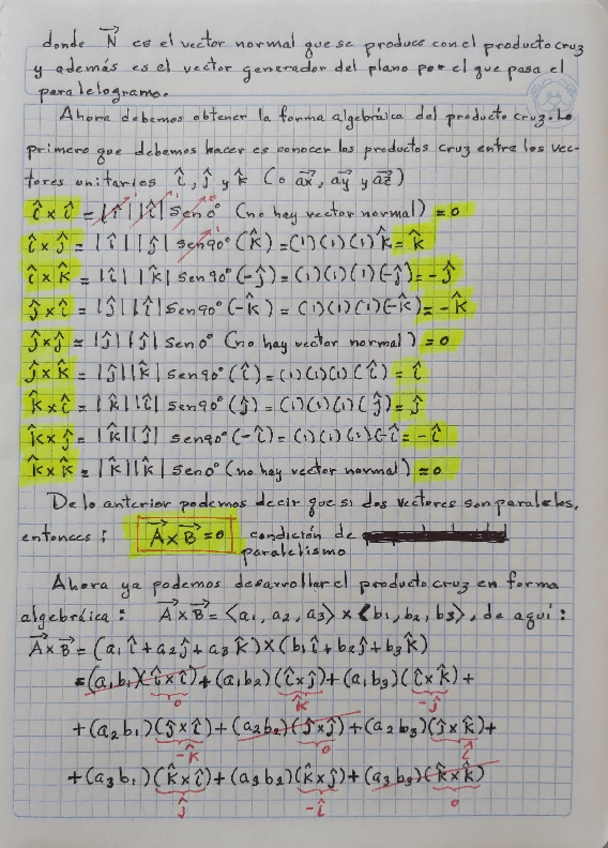 donde N⃗ es el vector normal que se produce con el producto cruz
y además es el vector generador del plano por el que pasa el
paralelogramo.
Ahora debemos obtener la forma algebráica del producto cruz. Lo
primero que debemos hacer es conocer los productos cruz entre los vec-
tores unitarios î, ĵ y k̂ (o a⃗x, a⃗y y a⃗z)
î x î = |î| |î| sen0° (no hay vector normal) = 0
î x ĵ = |î| |ĵ| sen90° (k̂) = (1)(1)(1) k̂ = k̂
î x k̂ = |î| |k̂| sen90° (-ĵ) = (1)(1)(1)(-ĵ) = -ĵ
ĵ x î = |ĵ| |î| sen90° (-k̂) = (1)(1)(1)(-k̂) = -k̂
ĵ x ĵ = |ĵ| |ĵ| sen0° (no hay vector normal) = 0
ĵ x k̂ = |ĵ| |k̂| sen90° (î) = (1)(1)(1)(î) = î
k̂ x î = |k̂| |î| sen90° (ĵ) = (1)(1)(1)(ĵ) = ĵ
k̂ x ĵ = |k̂| |ĵ| sen90° (-î) = (1)(1)(1)(-î = -î
k̂ x k̂ = |k̂| |k̂| sen0° (no hay vector normal) = 0
De lo anterior podemos decir que si dos vectores son paralelos,
entonces: A⃗ x B⃗ = 0 condición de
paralelismo
Ahora ya podemos desarrollar el producto cruz en forma
algebráica: A⃗ x B⃗ = ⟨a₁, a₂, a₃⟩ x ⟨b₁, b₂, b₃⟩, de aquí:
A⃗ x B⃗ = (a₁î + a₂ĵ + a₃k̂) x (b₁î + b₂ĵ + b₃k̂)
= (a₁b₁)(î x î) + (a₁b₂)(î x ĵ) + (a₁b₃)(î x k̂) +
0 k̂ -ĵ
+ (a₂b₁)(ĵ x î) + (a₂b₂)(ĵ x ĵ) + (a₂b₃)(ĵ x k̂) +
-k̂ 0 î
+ (a₃b₁)(k̂ x î) + (a₃b₂)(k̂ x ĵ) + (a₃b₃)(k̂ x k̂)
ĵ -î 0